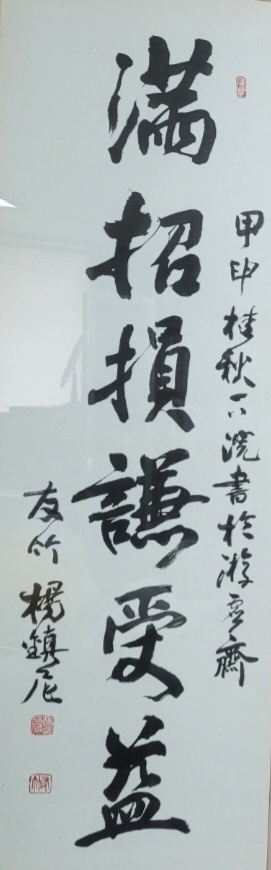 滿招損謙受益
甲申桂秋下浣書於游雲齋
友竹 楊鎮